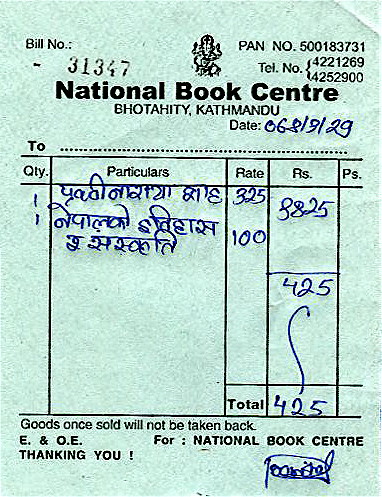 Bill No.:
PAN NO. 500183731
- 31347
Tel. No. 4221269
4252900
National Book Centre
BHOTAHITY, KATHMANDU
Date: 068/9/29
To
Qty. Particulars Rate Rs. Ps.
1 पृथ्वीनारायण शाह 325
1 नेपालको इतिहास 100
र संस्कृति
425
Total 425
Goods once sold will not be taken back.
E. & O.E. For : NATIONAL BOOK CENTRE
THANKING YOU !